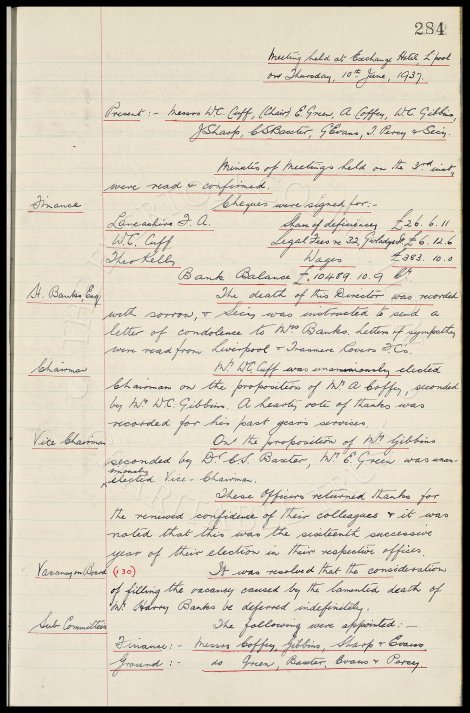 284
Meeting held at Exchange Hotel, L'pool
on Thursday, 10th June, 1937.
Present :- Messrs W.C. Cuff, (Chair) E. Green, A. Coffey, W.C. Gibbins,
J. Sharp, C.S. Baxter, G. Evans, T. Percy & Secy.
Minutes of Meetings held on the 3rd inst,
were read & confirmed.
Finance Cheques were signed for :-
Lancashire F.A. Share of deficiency £26. 6. 11
W.C. Cuff Legal Fees re 32, Goodison £6. 12. 6
Theo Kelly Wages £383. 10. 0
Bank Balance £10489. 10. 9 Cr
H. Banks, Esq The death of this Director was recorded
with sorrow, & Secy was instructed to send a
letter of condolence to Mrs Banks. Letters of sympathy
were read from Liverpool & Tranmere Rovers F.C's.
Chairman Mr W.C. Cuff was unanimously elected
Chairman on the proposition of Mr A Coffey, seconded
by Mr W.C. Gibbins. A hearty vote of thanks was
recorded for his past years services.
Vice Chairman On the proposition of Mr Gibbins
seconded by Dr C.S. Baxter, Mr E. Green was unani-
mously
elected Vice-Chairman.
These Officers returned thanks for
the renewed confidence of their colleagues & it was
noted that this was the sixteenth successive
year of their election in their respective offices.
Vacancy on Board (130) It was resolved that the consideration
of filling the vacancy caused by the lamented death of
Mr Harry Banks be deferred indefinitely.
Sub Committees The following were appointed :-
Finance :- Messrs Coffey, Gibbins, Sharp & Evans
Ground :- do Green, Baxter, Evans & Percy.